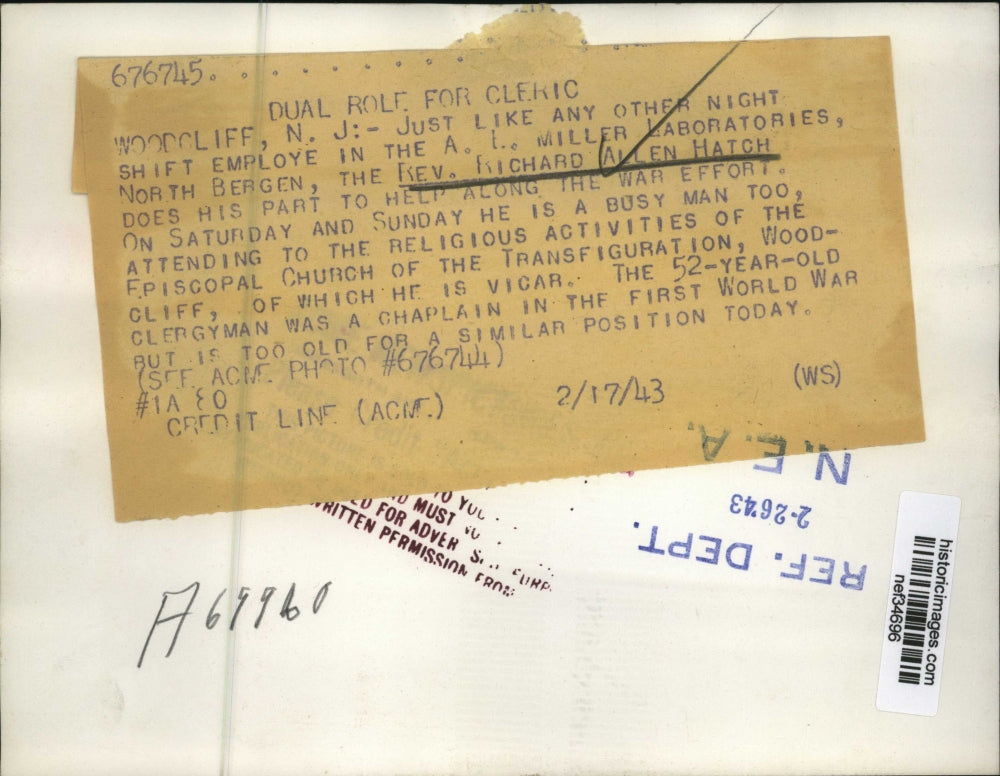 676745. . . . . . . . . .
DUAL ROLE FOR CLERIC
WOODCLIFF, N. J:- JUST LIKE ANY OTHER NIGHT
SHIFT EMPLOYE IN THE A. L. MILLER LABORATORIES,
NORTH BERGEN, THE REV. RICHARD ALLEN HATCH
DOES HIS PART TO HELP ALONG THE WAR EFFORT.
ON SATURDAY AND SUNDAY HE IS A BUSY MAN TOO,
ATTENDING TO THE RELIGIOUS ACTIVITIES OF THE
EPISCOPAL CHURCH OF THE TRANSFIGURATION, WOOD-
CLIFF, OF WHICH HE IS VICAR. THE 52-YEAR-OLD
CLERGYMAN WAS A CHAPLAIN IN THE FIRST WORLD WAR
BUT IS TOO OLD FOR A SIMILAR POSITION TODAY.
(SEE ACME PHOTO #676744)
#1A EO
CREDIT LINE (ACME) 2/17/43 (WS)
N.E.A.
2-2643
REF. DEPT.
TO YOU
MUST
FOR ADVER
WRITTEN PERMISSION FROM
A69960
historicimages.com
nef34696